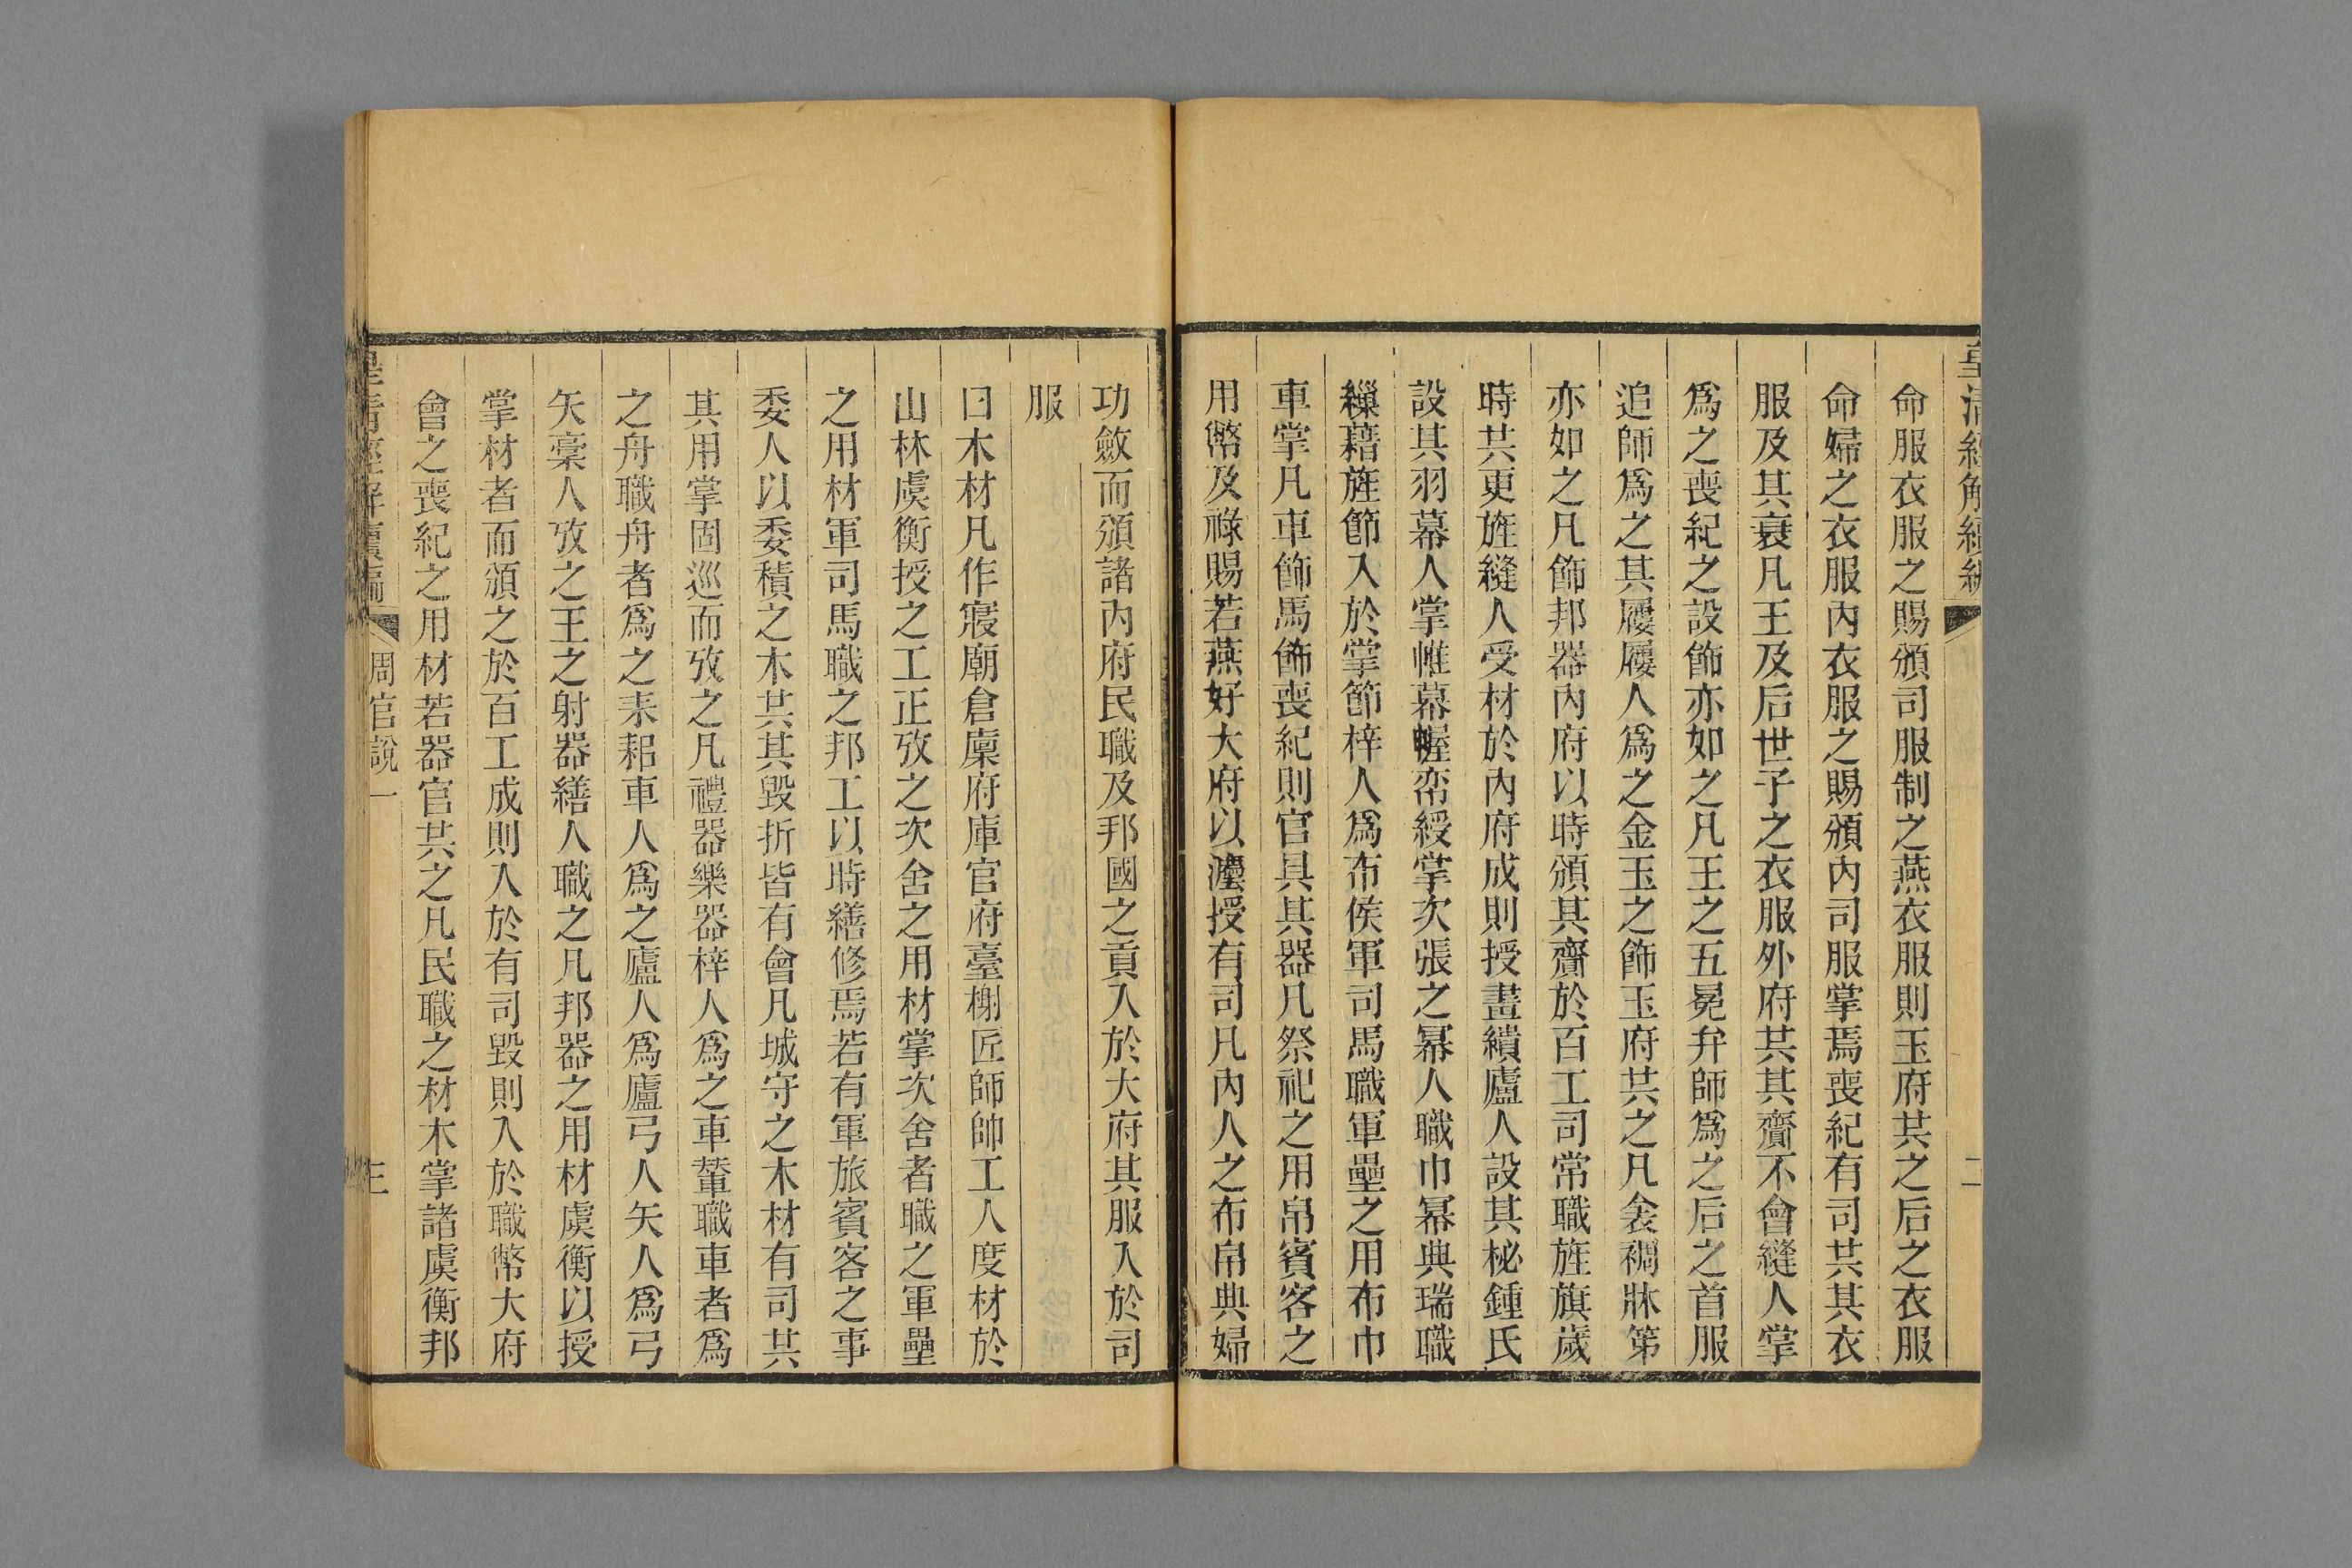 皇清經解續編
二
命服衣服之賜頒司服制之燕衣服則玉府共之后之衣服
命婦之衣服內衣服之賜頒內司服掌焉喪紀有司共其衣
服及其衰凡王及后世子之衣服外府共其齎不會縫人掌
爲之喪紀之設飾亦如之凡王之五冕弁師爲之后之首服
追師爲之其屨屨人爲之金玉之飾玉府共之凡衾裯牀笫
亦如之凡飾邦器內府以時頒其齎於百工司常職旌旗歲
時共更旌縫人受材於內府成則授畫繢廬人設其柲鍾氏
設其羽幕人掌帷幕幄帟綬掌次張之冪人職巾冪典瑞職
繅藉旌節入於掌節梓人爲布侯軍司馬職軍壘之用布巾
車掌凡車飾馬飾喪紀則官具其器凡祭祀之用帛賓客之
用幣及祿賜若燕好大府以灋授有司凡內人之布帛典婦
功斂而頒諸內府民職及邦國之貢入於大府其服入於司
服
曰木材凡作寢廟倉廩府庫官府臺榭匠師帥工人度材於
山林虞衡授之工正攷之次舍之用材掌次舍者職之軍壘
之用材軍司馬職之邦工以時繕修焉若有軍旅賓客之事
委人以委積之木共其毀折皆有會凡城守之木材有司共
其用掌固巡而攷之凡禮器樂器梓人爲之車輦職車者爲
之舟職舟者爲之耒耜車人爲之廬人爲廬弓人矢人爲弓
矢稾人攷之王之射器繕人職之凡邦器之用材虞衡以授
掌材者而頒之於百工成則入於有司毀則入於職幣大府
會之喪紀之用材若器官共之凡民職之材木掌諸虞衡邦
皇清經解續編
周官說一
三